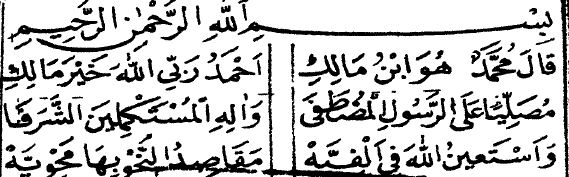 بِسْــــمِ اللهِ الرَّحْمٰنِ الرَّحِيمِ
قَالَ مُحَمَّدٌ هُوَ ابْنُ مَالِكِ اَحْمَدُ رَبِّي اللهَ خَيْرَ مَالِكِ
مُصَلِّيًا عَلَى الرَّسُولِ الْمُصْطَفَى وَاٰلِهِ الْمُسْتَكْمِلِينَ الشَّرَفَا
وَاَسْتَعِينُ اللهَ فِي اَلْفِيَّهْ مَقَاصِدُ النَّحْوِ بِهَا مَحْوِيَّهْ